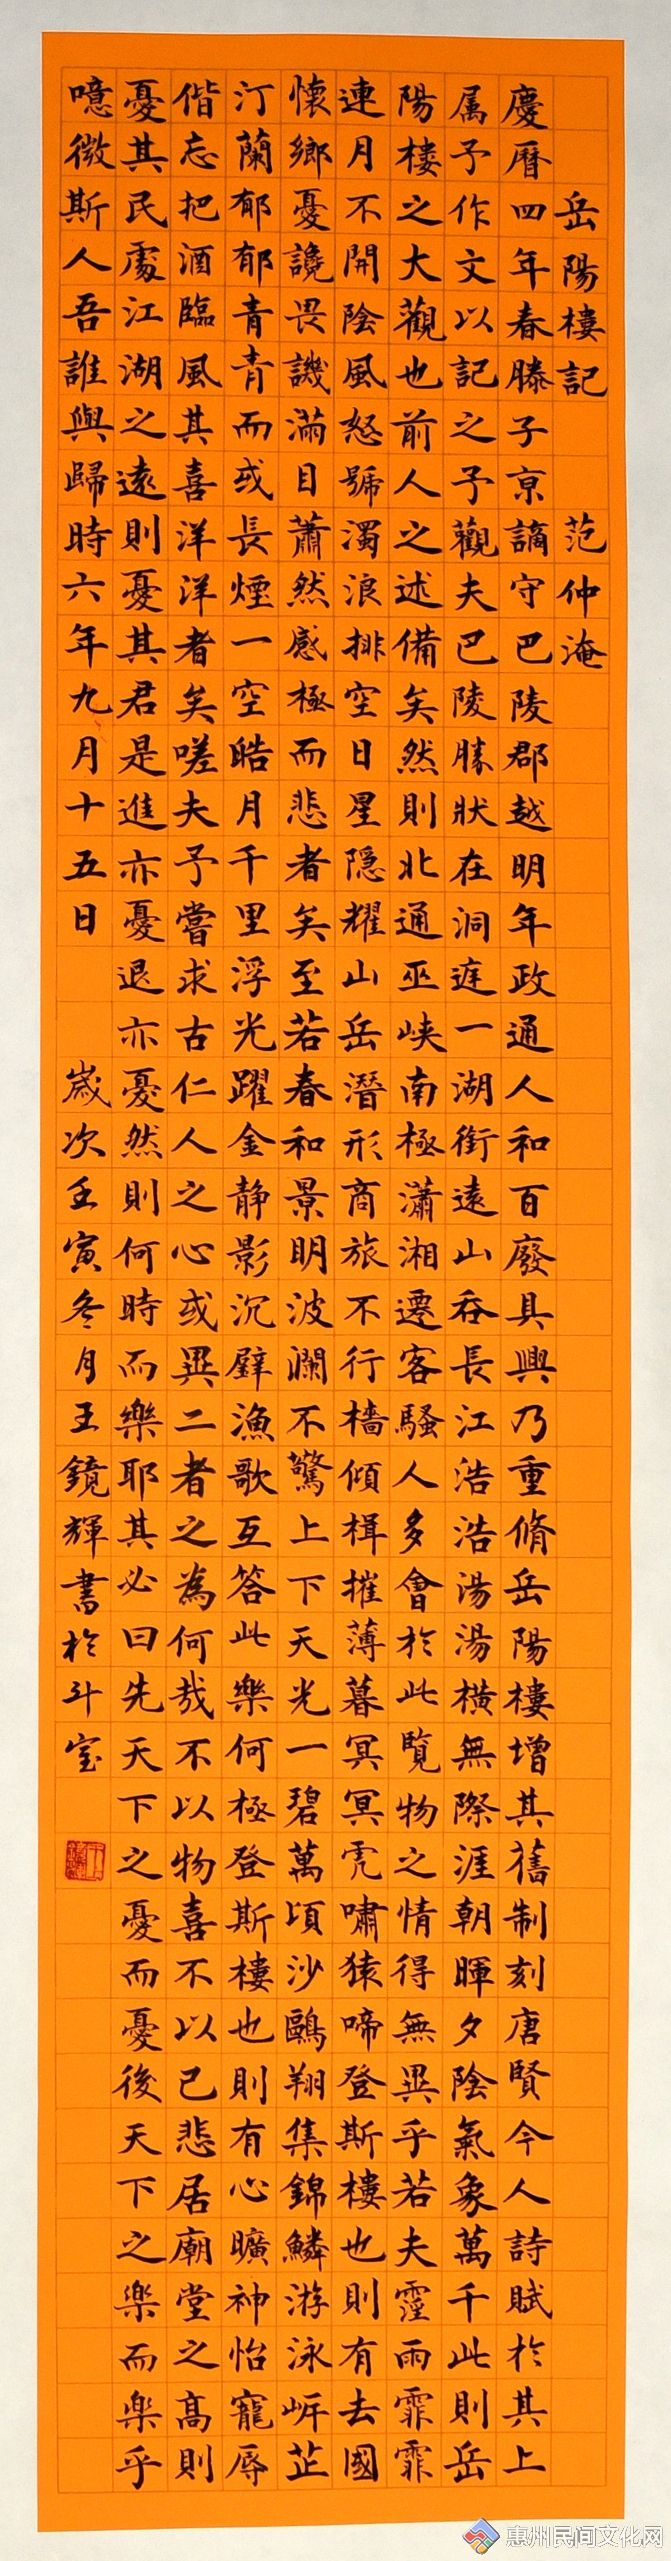 岳陽樓記 范仲淹
慶曆四年春滕子京謫守巴陵郡越明年政通人和百廢具興乃重脩岳陽樓增其舊制刻唐賢今人詩賦於其上
属予作文以記之予觀夫巴陵勝狀在洞庭一湖銜遠山吞長江浩浩湯湯橫無際涯朝暉夕陰氣象萬千此則岳
陽樓之大觀也前人之述備矣然則北通巫峡南極瀟湘遷客騷人多會於此覽物之情得無異乎若夫霪雨霏霏
連月不開陰風怒號濁浪排空日星隱耀山岳潛形商旅不行檣傾楫摧薄暮冥冥虎嘯猿啼登斯樓也則有去國
懷鄉憂讒畏譏滿目蕭然感極而悲者矣至若春和景明波瀾不驚上下天光一碧萬頃沙鷗翔集錦鱗游泳岸芷
汀蘭郁郁青青而或長煙一空皓月千里浮光躍金静影沉璧漁歌互答此樂何極登斯樓也則有心曠神怡寵辱
偕忘把酒臨風其喜洋洋者矣嗟夫予嘗求古仁人之心或異二者之為何哉不以物喜不以己悲居廟堂之高則
憂其民處江湖之遠則憂其君是進亦憂退亦憂然則何時而樂耶其必曰先天下之憂而憂後天下之樂而樂乎
噫微斯人吾誰與歸時六年九月十五日 歲次壬寅冬月王鏡輝書於斗室
惠州民间文化网